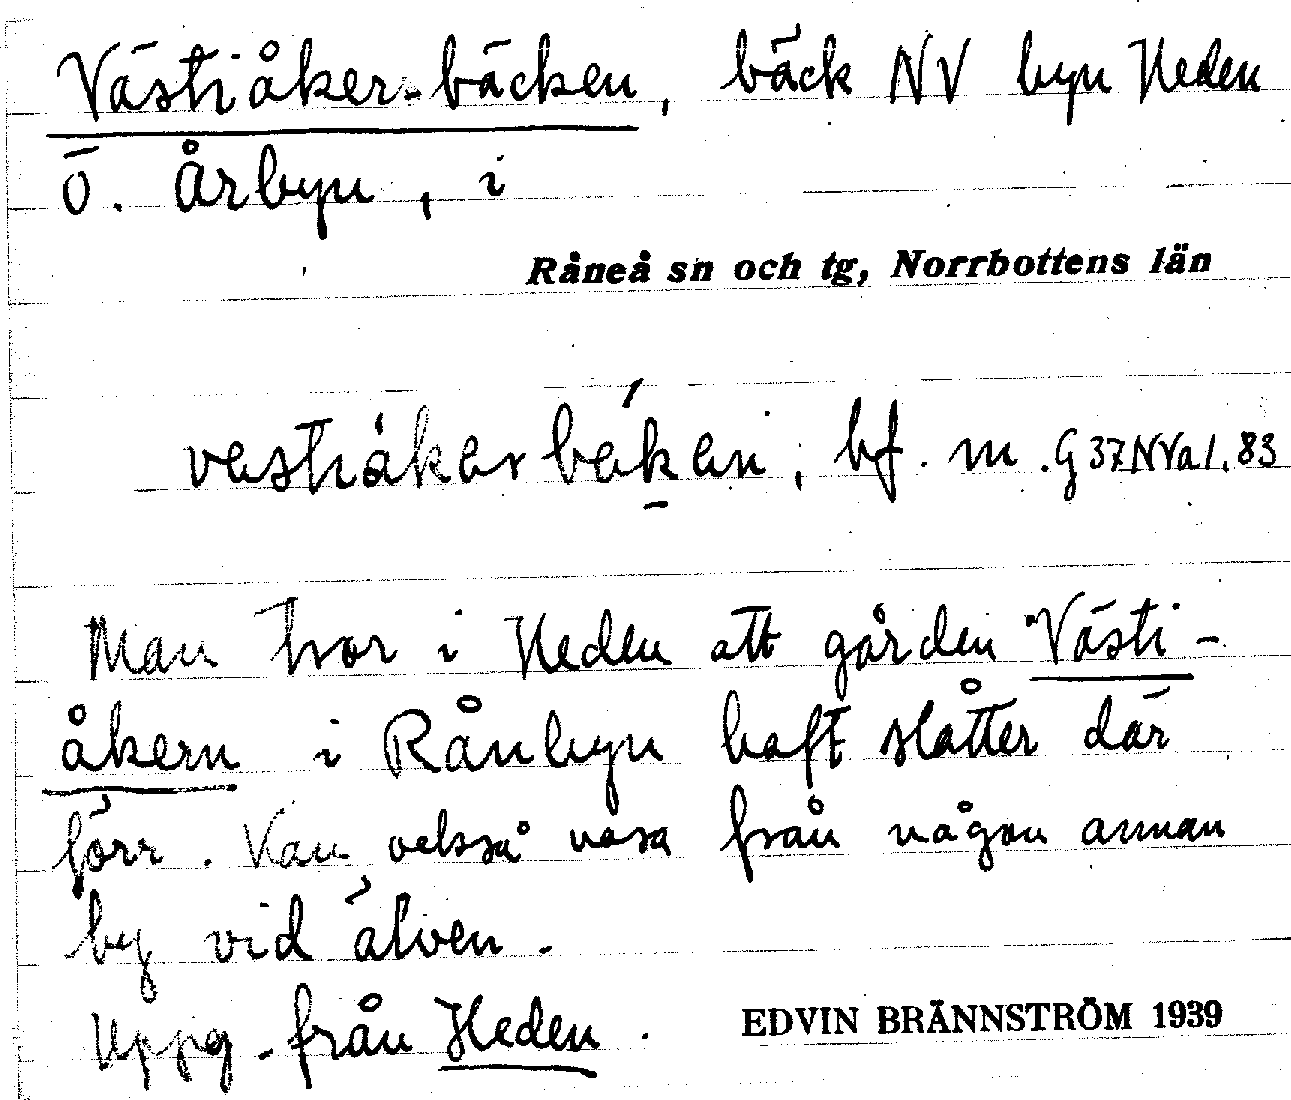 Västiåker-bäcken, bäck NV byn Heden
ö. Årbyn, i
Råneå sn och tg, Norrbottens län
vestiåkerbeken, bf. m. G 37 NVa 1.83
Man tror i Heden att gården Västi-
åkern i Rånbyn haft slåtter där
förr. Kan också vara från någon annan
by vid älven.
Uppg. från Heden.
EDVIN BRÄNNSTRÖM 1939